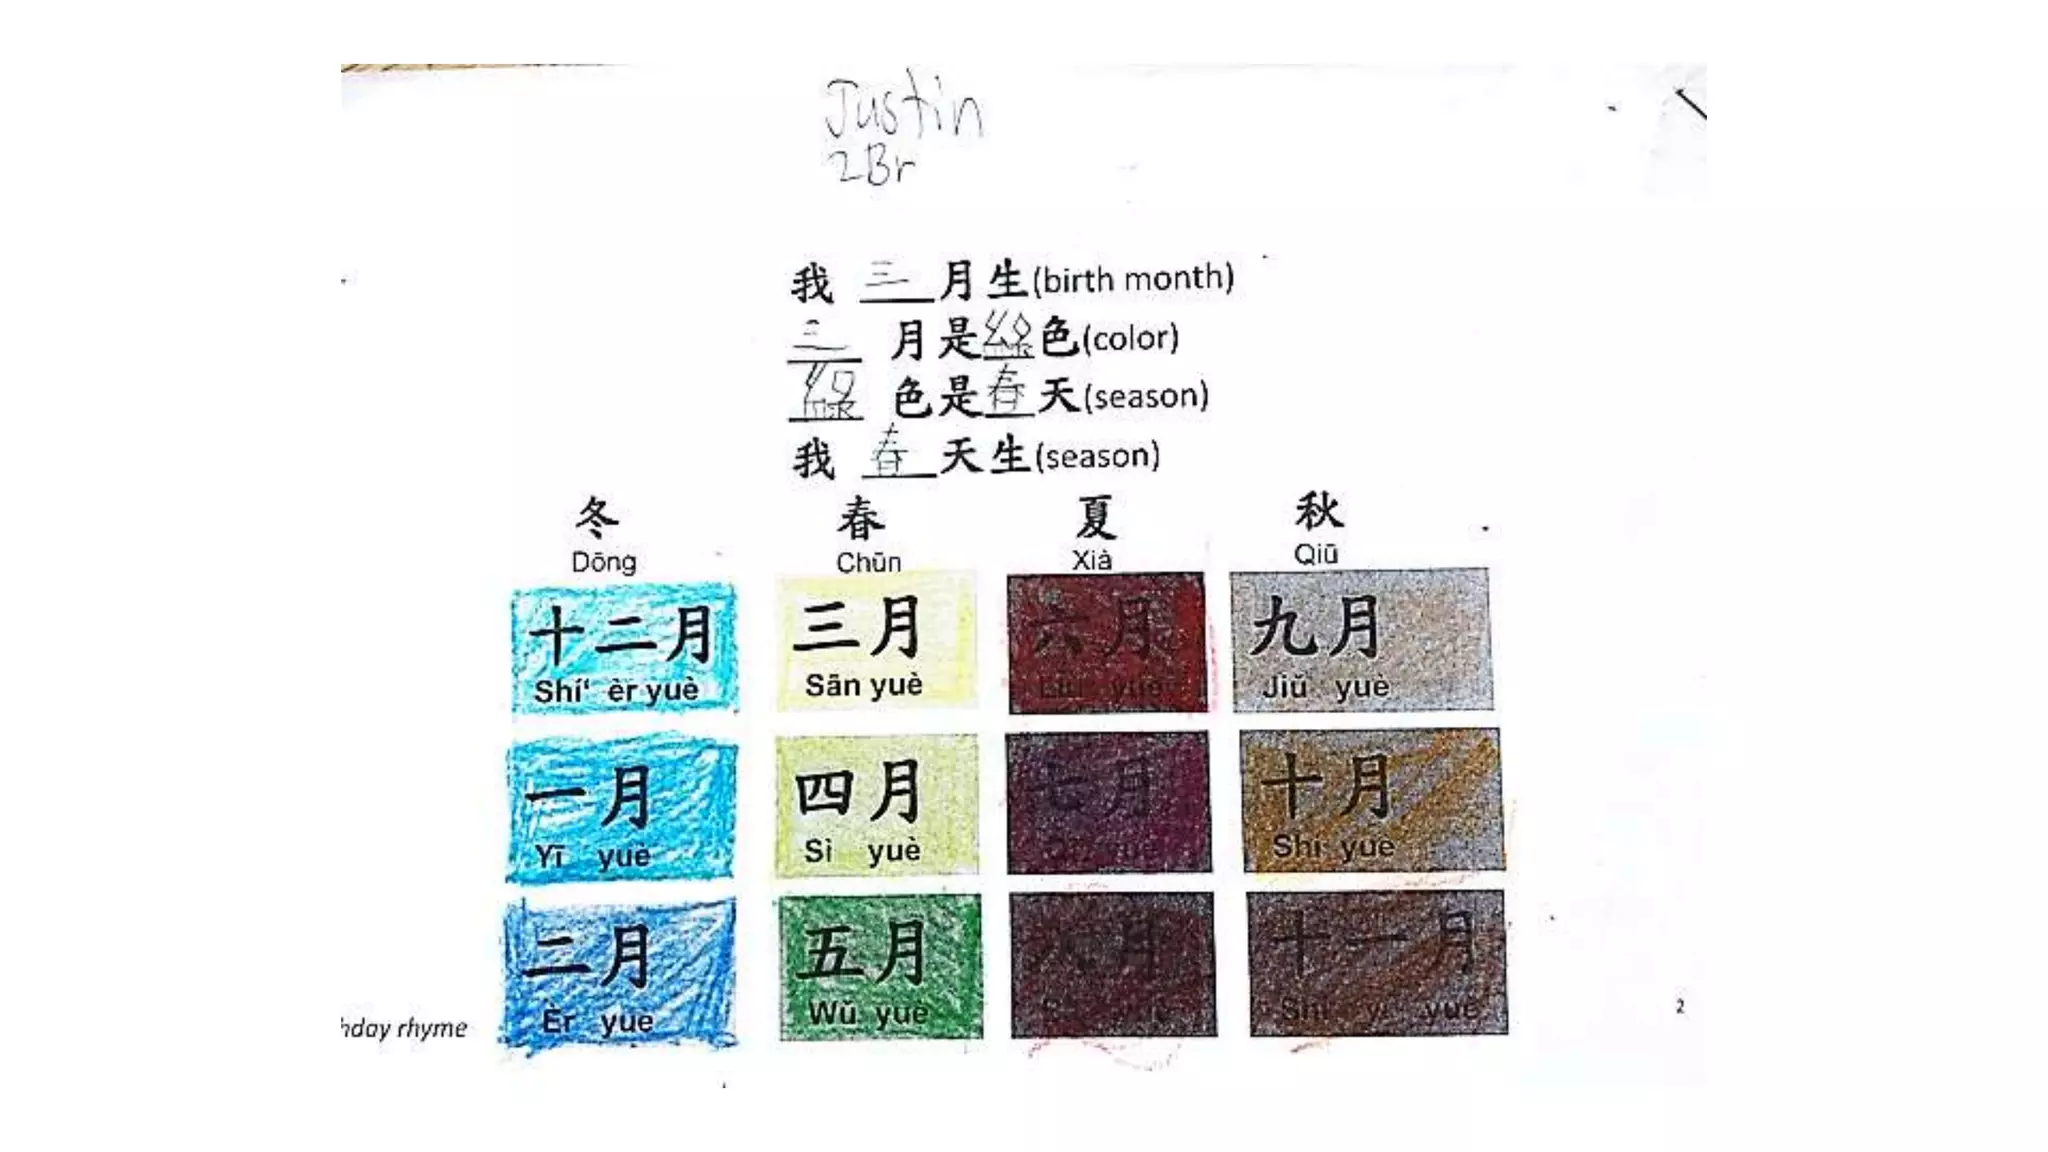 Justin
2Br
我 三 月生(birth month)
三 月是綠色(color)
綠 色是春天(season)
我 春 天生(season)
冬 春 夏 秋
Dōng Chūn Xià Qiū
十二月 三月 六月 九月
Shí‘ èr yuè Sān yuè Liù yuè Jiǔ yuè
一月 四月 七月 十月
Yī yuè Sì yuè yuè Shí yuè
二月 五月 月 十一月
Èr yuè Wǔ yuè yuè Shí yī yuè
hday rhyme
2